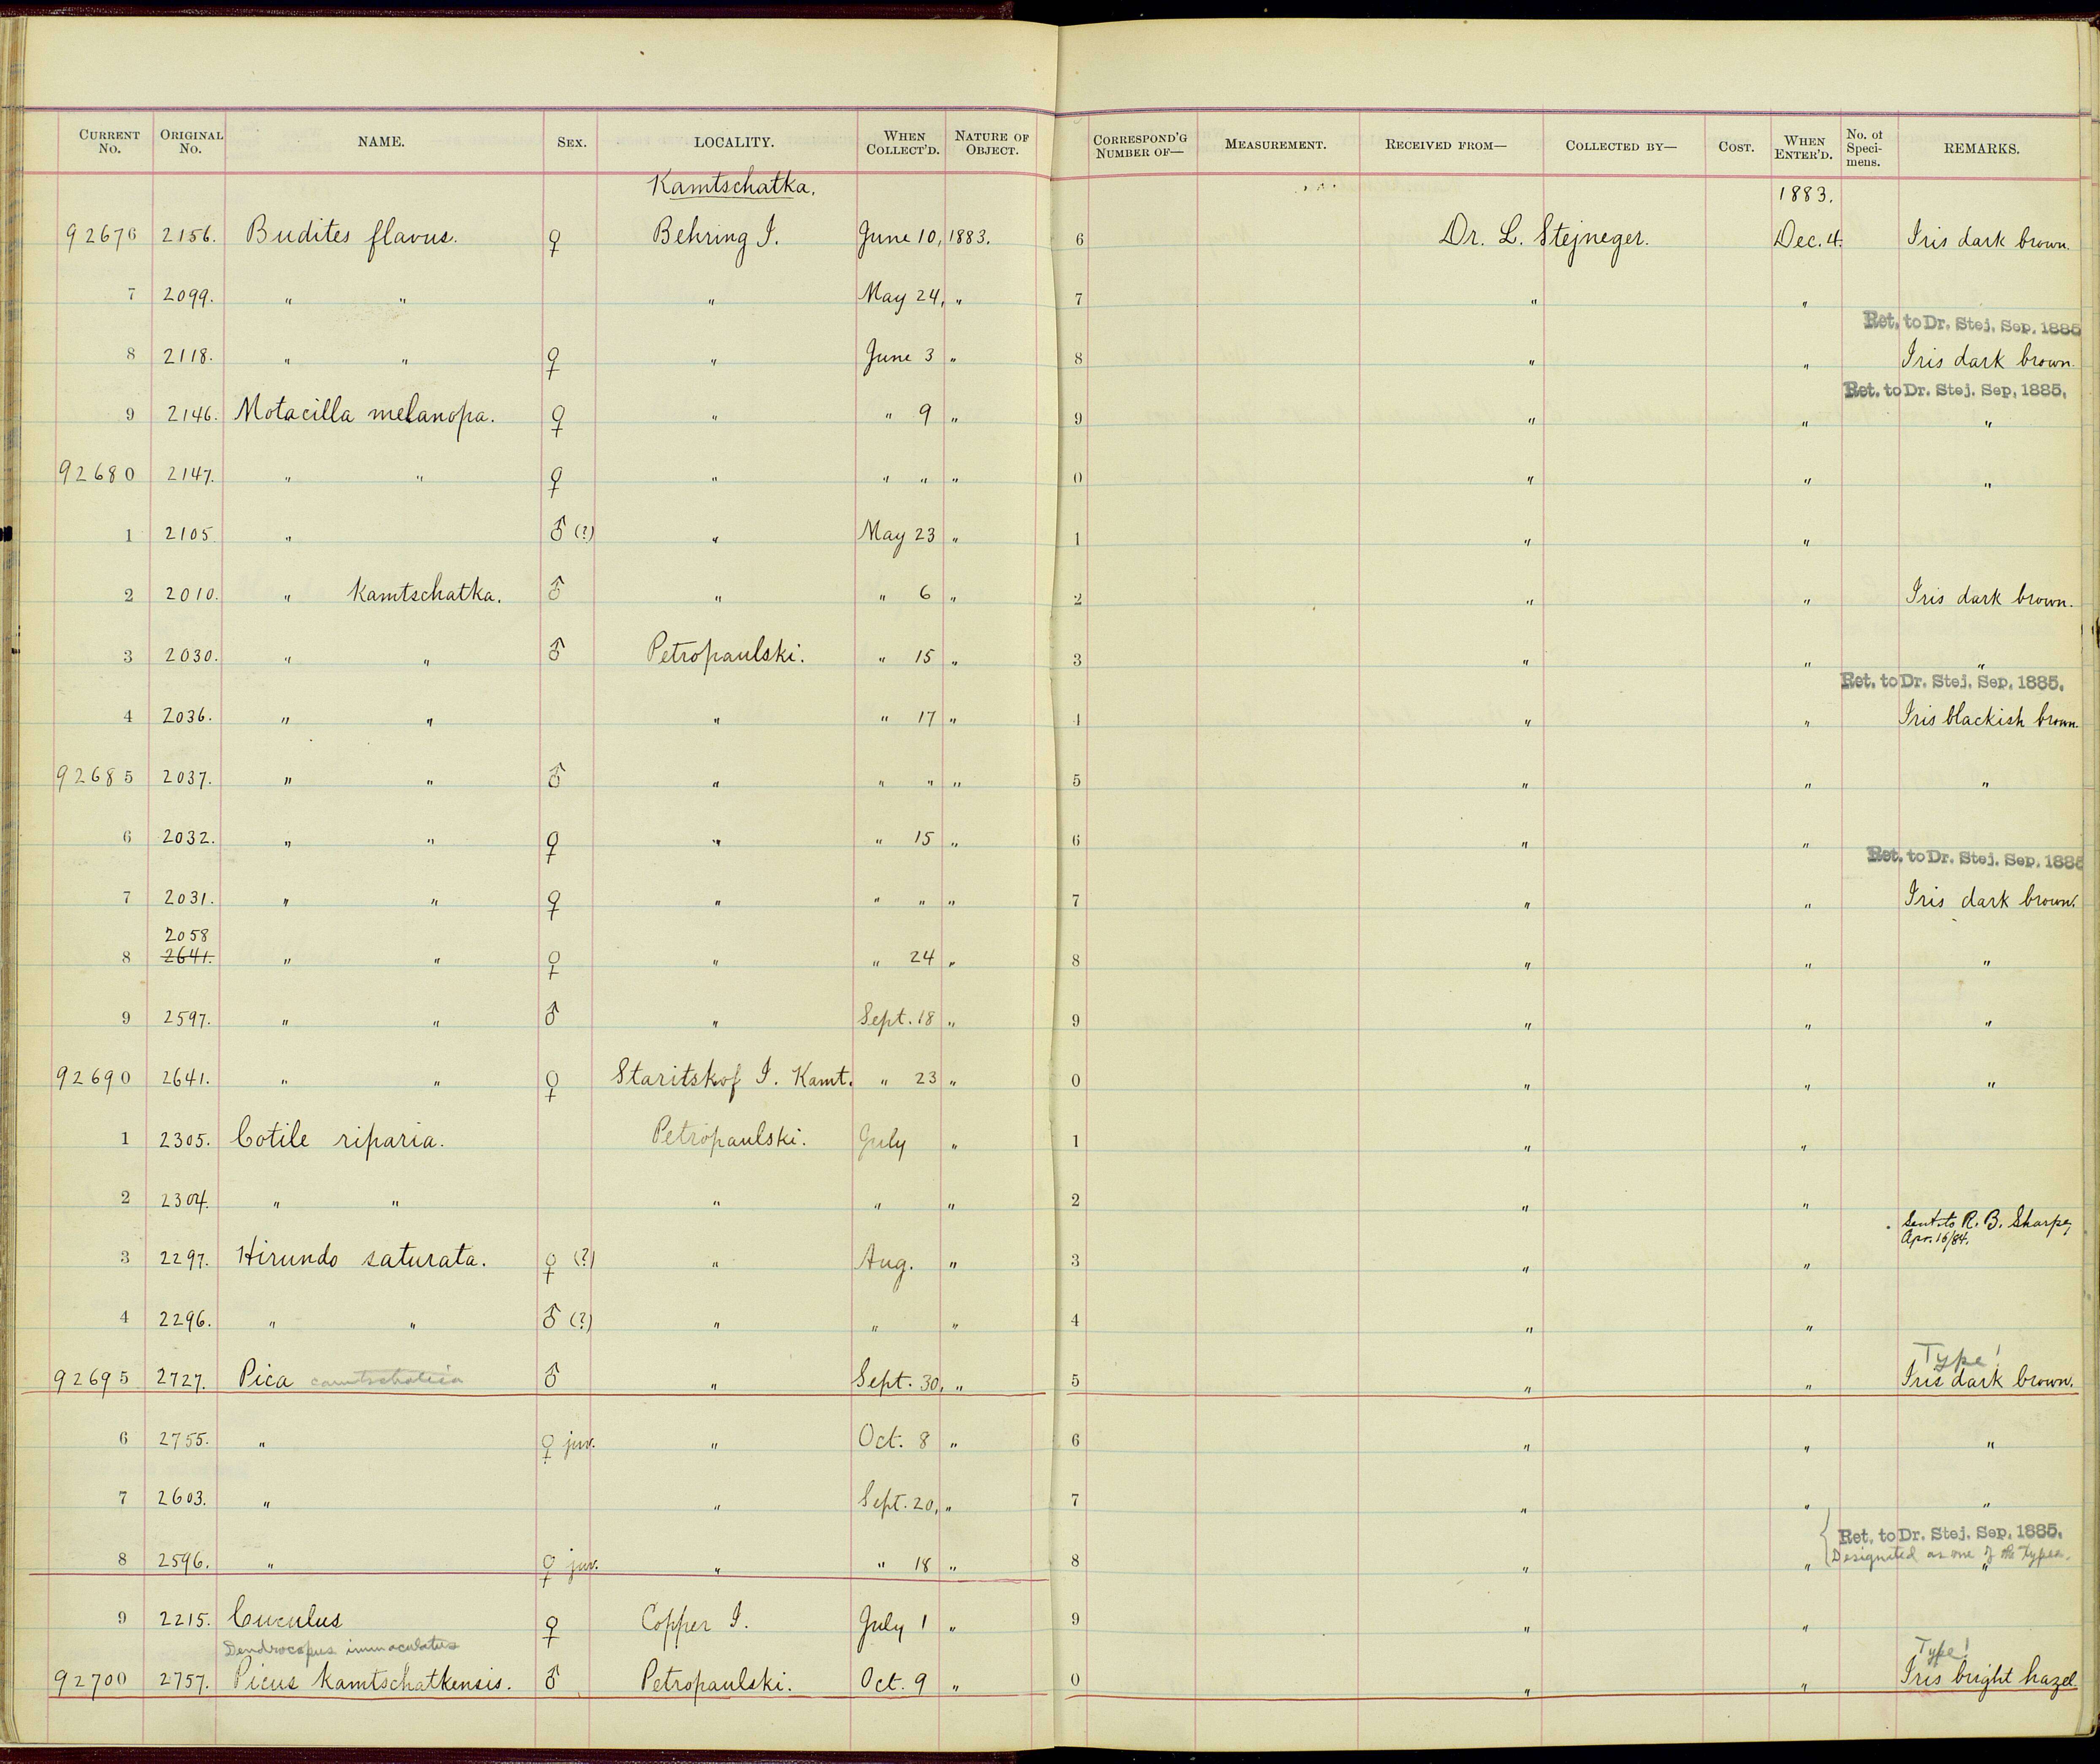 CURRENT No. ORIGINAL No. NAME. SEX. LOCALITY. WHEN COLLECT'D. NATURE OF OBJECT. CORRESPOND'G NUMBER OF— MEASUREMENT. RECEIVED FROM— COLLECTED BY— COST. WHEN ENTER'D. No. of Speci-mens. REMARKS.
Kamtschatka. 1883.
92676 2156. Budites flavus. ♀ Behring I. June 10, 1883. 6 Dr. L. Stejneger. Dec. 4. Iris dark brown.
7 2099. " " " May 24, " 7 " "
Ret. to Dr. Stej. Sep. 1885
8 2118. " " ♀ " June 3 " 8 " " Iris dark brown.
Ret. to Dr. Stej. Sep. 1885.
9 2146. Motacilla melanopa. ♀ " " 9 " 9 " " "
92680 2147. " " ♀ " " " " 0 " " "
1 2105 " ♂ (?) " May 23 " 1 " "
2 2010. " Kamtschatka. ♂ " " 6 " 2 " " Iris dark brown.
3 2030. " " ♂ Petropaulski. " 15 " 3 " " "
Ret. to Dr. Stej. Sep. 1885.
4 2036. " " " " 17 " 4 " " Iris blackish brown.
92685 2037. " " ♂ " " " " 5 " " "
6 2032. " " ♀ " " 15 " 6 " "
Ret. to Dr. Stej. Sep. 1885
7 2031. " " ♀ " " " " 7 " " Iris dark brown.
2058
8 2641. " " ♀ " " 24 " 8 " " "
9 2597. " " ♂ " Sept. 18 " 9 " " "
92690 2641. " " ♀ Staritskof I. Kamt. " 23 " 0 " " "
1 2305. Cotile riparia. Petropaulski. July " 1 " "
2 2304. " " " " " 2 " "
Sent to R. B. Sharpe,
Apr. 16/84.
3 2297. Hirundo saturata. ♀ (?) " Aug. " 3 " "
4 2296. " " ♂ (?) " " " 4 " "
Type!
92695 2727. Pica camtschatica ♂ " Sept. 30, " 5 " " Iris dark brown.
6 2755. " ♀ juv. " Oct. 8 " 6 " " "
7 2603. " " Sept. 20, " 7 " " "
Ret. to Dr. Stej. Sep. 1885.
Designated as one of the types.
8 2596. " ♀ juv. " " 18 " 8 " " "
9 2215. Cuculus ♀ Copper I. July 1 " 9 " "
Dendrocopus immaculatus Type!
92700 2757. Picus Kamtschatkensis. ♂ Petropaulski. Oct. 9 " 0 " " Iris bright hazel.